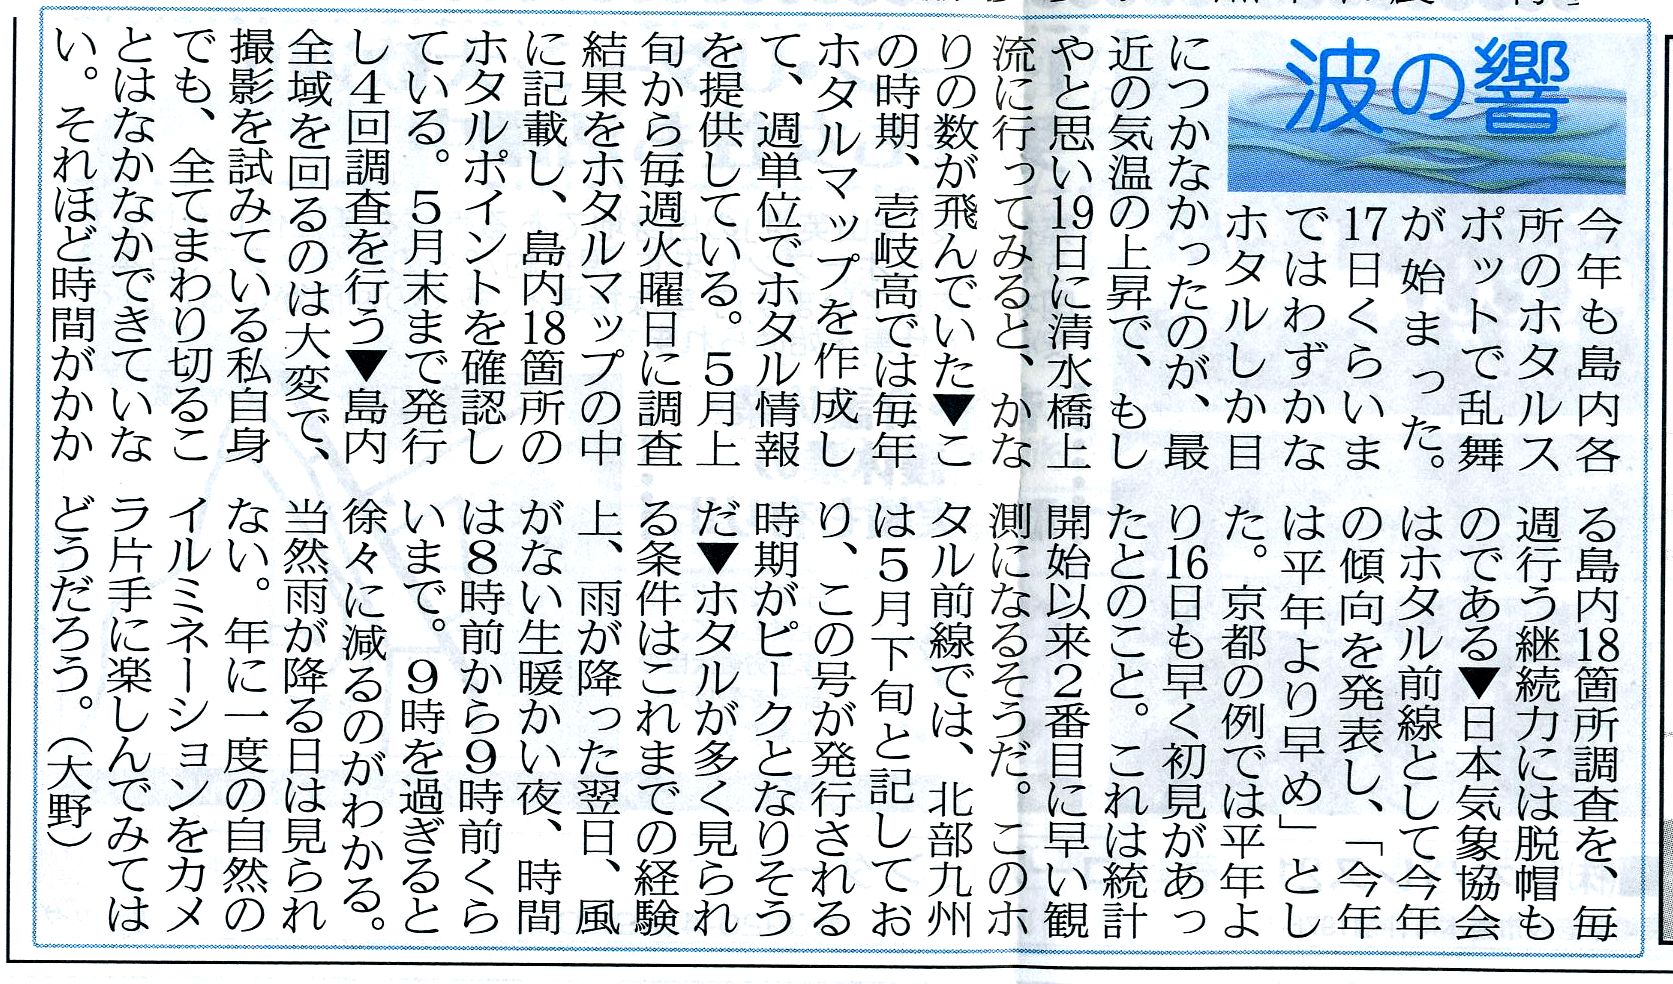 波の響
今年も島内各
所のホタルス
ポットで乱舞
が始まった。
17日くらいま
ではわずかな
ホタルしか目
につかなかったのが、最
近の気温の上昇で、もし
やと思い19日に清水橋上
流に行ってみると、かな
りの数が飛んでいた▼こ
の時期、壱岐高では毎年
ホタルマップを作成し
て、週単位でホタル情報
を提供している。5月上
旬から毎週火曜日に調査
結果をホタルマップの中
に記載し、島内18箇所の
ホタルポイントを確認し
ている。5月末まで発行
し4回調査を行う▼島内
全域を回るのは大変で、
撮影を試みている私自身
でも、全てまわり切るこ
とはなかなかできていな
い。それほど時間がかか
る島内18箇所調査を、毎
週行う継続力には脱帽も
のである▼日本気象協会
はホタル前線として今年
の傾向を発表し、「今年
は平年より早め」とし
た。京都の例では平年よ
り16日も早く初見があっ
たとのこと。これは統計
開始以来2番目に早い観
測になるそうだ。このホ
タル前線では、北部九州
は5月下旬と記してお
り、この号が発行される
時期がピークとなりそう
だ▼ホタルが多く見られ
る条件はこれまでの経験
上、雨が降った翌日、風
がない生暖かい夜、時間
は8時前から9時前くら
いまで。9時を過ぎると
徐々に減るのがわかる。
当然雨が降る日は見られ
ない。年に一度の自然の
イルミネーションをカメ
ラ片手に楽しんでみては
どうだろう。（大野）